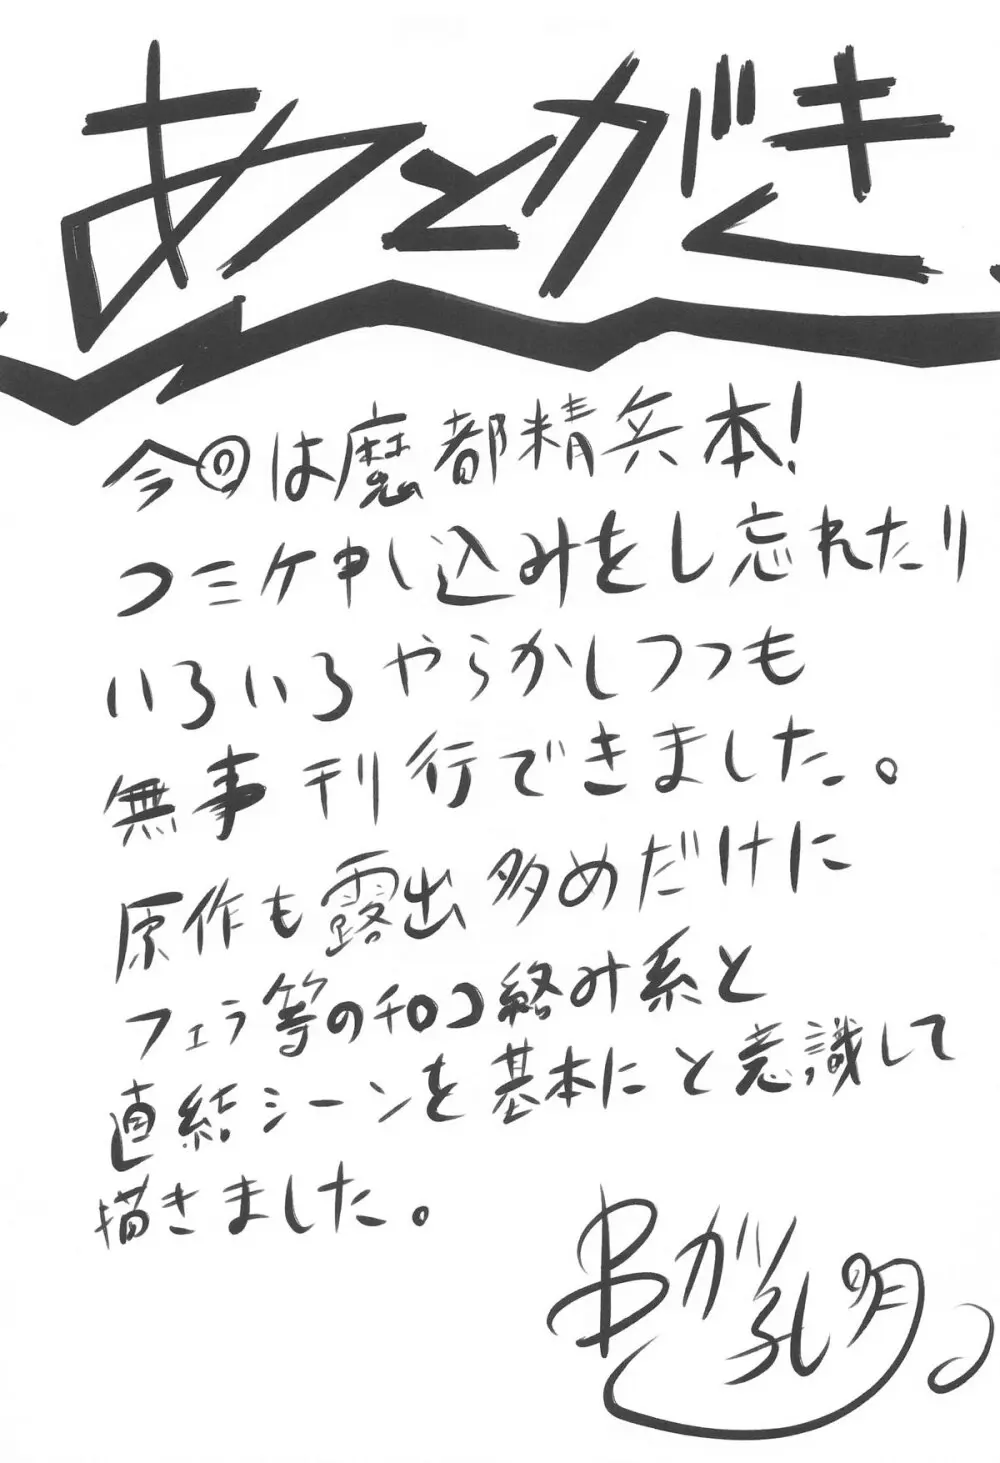 あとがき
今回は魔都精兵本!
コミケ申し込みをし忘れたり
いろいろやらかしつつも
無事刊行できました。
原作も露出多めだけに
フェラ等のチ○コ絡み系と
直結シーンを基本にと意識して
描きました。
串が孔明